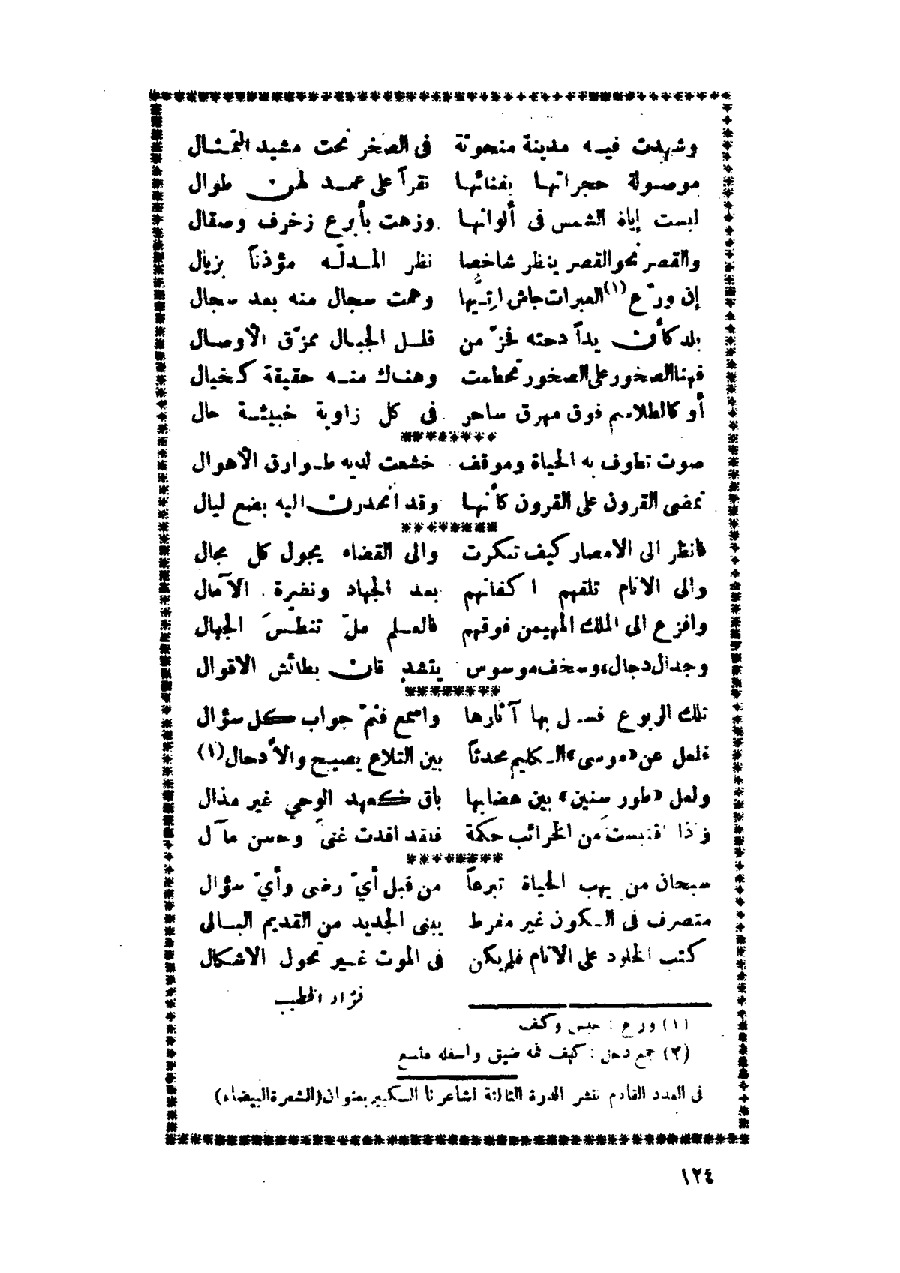 وشهدت فيه مدينة منحوتة في الصخر تحت مشيد التمثال
موصولة حجراتها بفنائها تقرأ على عمد لهن طوال
لبست إياة الشمس في ألوانها وزهت بأبرع زخرف وصقال
والقصر نحو القصر ينظر شاخصا نظر المدلّه مؤذناً بزيال
إن ورّع (١) العبرات جاش أتيّها وهمت سجال منه بعد سجال
بلد كأن يداً دحته فخرّ من قلل الجبال ممزّق الأوصال
فهنا الصخور على الصخور تحطمت وهناك منه حقيقة كخيال
أو كالطلاسم فوق مهرق ساحر في كل زاوية خبيئة حال
********
صوت تطوف به الحياة وموقف خشعت لديه طوارق الأهوال
تمضى القرون على القرون كأنها وقد انحدرن اليه بضع ليال
********
فانظر الى الامصار كيف تنكرت والى القضاء يجول كل مجال
والى الانام تلفهم اكفانهم بعد الجهاد ونضرة الآمال
وافزع الى الملك المهيمن فوقهم فالعلم ملّ تنطّسَ الجهال
وجدال دجال، وسخف موسوس يتقد فان بطائش الاقوال
********
تلك الربوع فسل بها آثارها واسمع فثمّ جواب كل سؤال
فلعل عن «موسى» الكليم محدثاً بين التلاع يصيح والأدحال (١)
ولعل «طور سنين» بين هضابها باق كعهد الوحي غير مذال
وإذا اقتبست من الخرائب حكمة فلقد افدت غنىً وحسن مآل
********
سبحان من يهب الحياة تبرعاً من قبل أيّ رضى وأيّ سؤال
متصرف في الكون غير مفرط يبنى الجديد من القديم البالى
كتب الخلود على الانام فلم يكن في الموت غير تحول الاشكال
فؤاد الخطيب
(١) ورع : حبس وكف
(٢) جمع دحل : كهف فمه ضيق واسفله متسع
في العدد القادم ننشر الدرة الثالثة لشاعرنا الكبير بعنوان (الشعرة البيضاء)
١٢٤